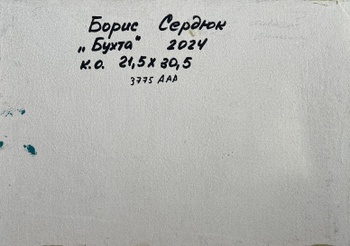 Борис Сердюк
„Бухта" 2024
к.о. 21,5 х 30,5
3775 ДАД